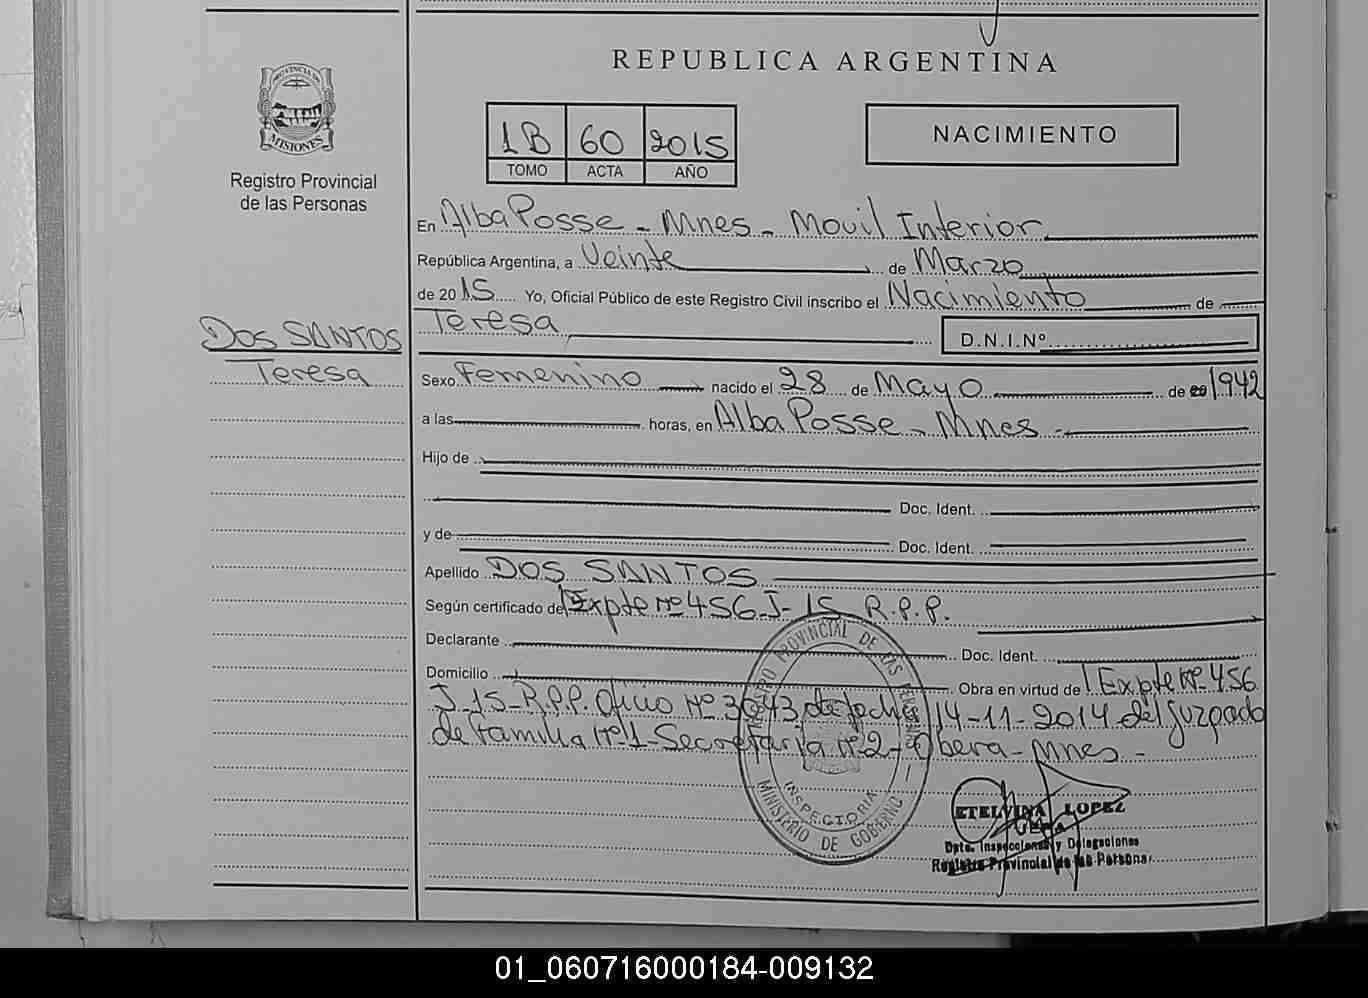 REPUBLICA ARGENTINA
PROVINCIA DE
MISIONES
Registro Provincial
de las Personas
1B 60 2015
TOMO ACTA AÑO
NACIMIENTO
En Alba Posse - Mnes - Movil Interior
República Argentina, a Veinte de Marzo
de 2015 Yo, Oficial Público de este Registro Civil inscribo el Nacimiento de
Teresa
D.N.I.Nº
DOS SANTOS
Teresa
Sexo Femenino nacido el 28 de Mayo de 20 1942
a las horas, en Alba Posse - Mnes -
Hijo de
Doc. Ident.
y de Doc. Ident.
Apellido DOS SANTOS
Según certificado de Expte nº 456 J-15 R.P.P.
Declarante Doc. Ident.
Domicilio Obra en virtud de Expte nº 456
J-15-R.P.P. Oficio nº 3043 de fecha 14-11-2014 del Juzgado
de Familia nº 1 - Secretaria nº 2 - Obera - Mnes -
REGISTRO PROVINCIAL DE LAS PERSONAS
INSPECTORIA
MINISTERIO DE GOBIERNO
ETELVINA LOPEZ
JEFA
Dpto. Inspecciones y Delegaciones
Registro Provincial de las Personas
01_060716000184-009132